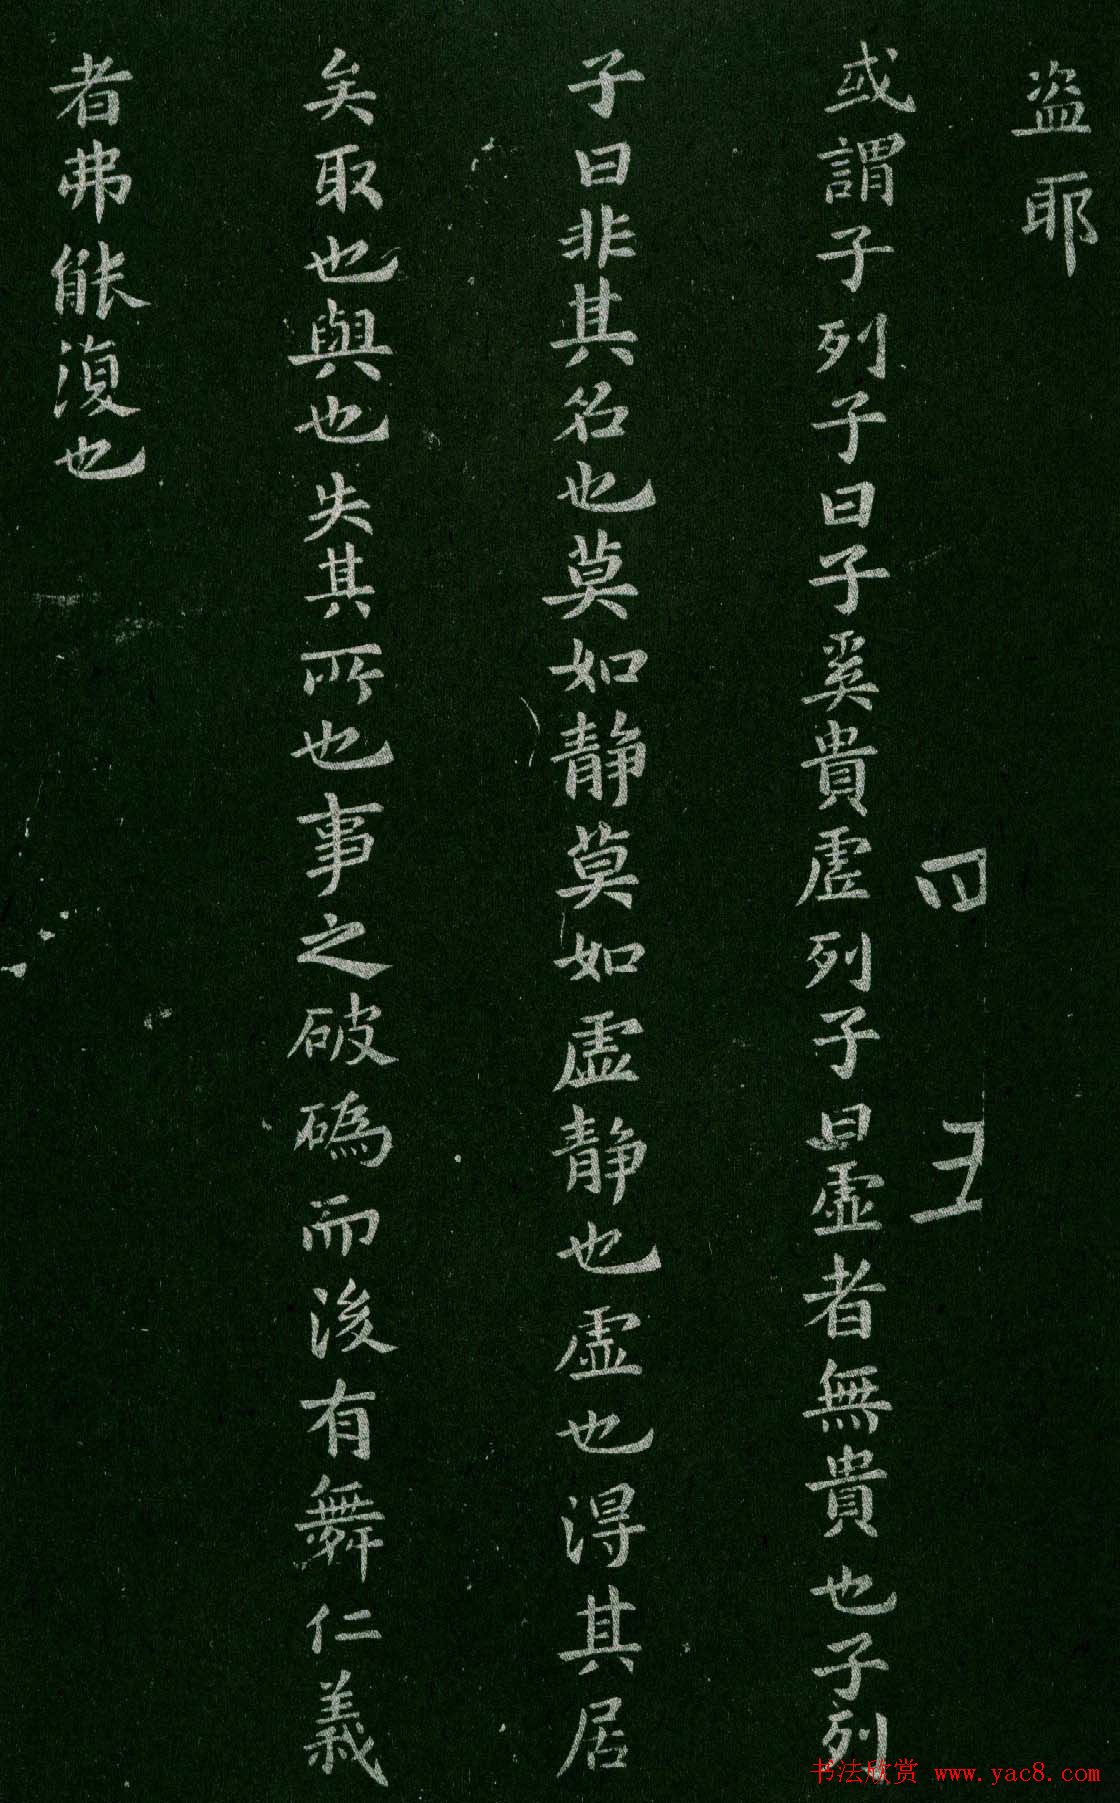 盗耶
或謂子列子曰子奚貴虛列子曰虛者無貴也子列
子曰非其名也莫如静莫如虛静也虛也得其居
矣取也與也失其所也事之破䃣而後有舞仁義
者弗能復也
四 五
书法欣赏 www.yac8.com